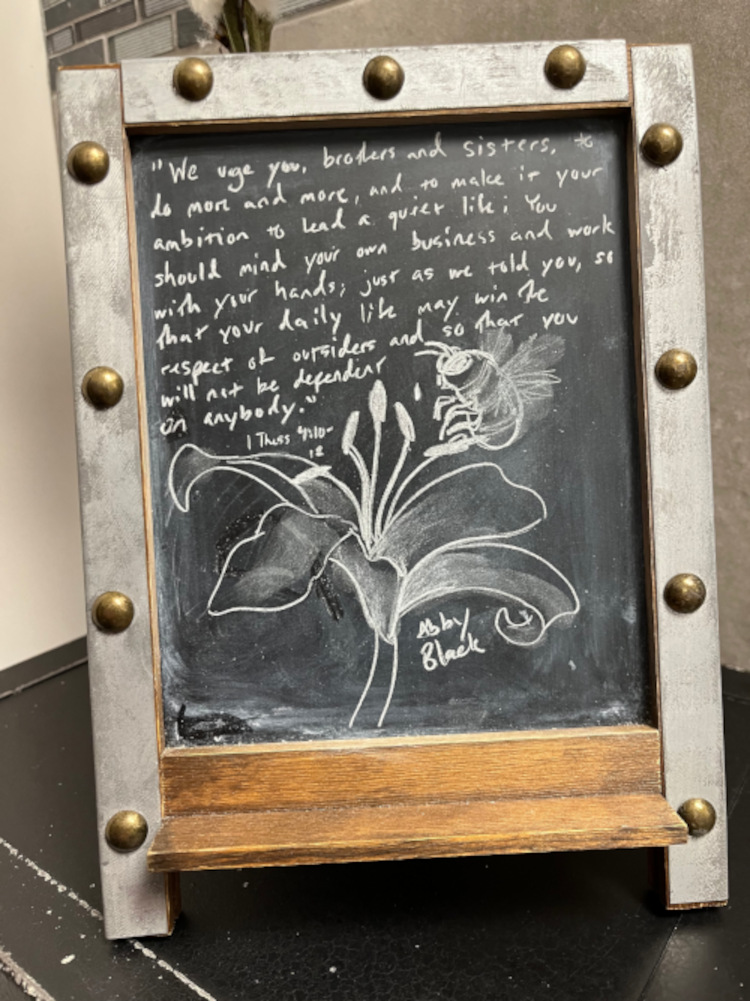 "We urge you, brothers and sisters, to
do more and more, and to make it your
ambition to lead a quiet life; You
should mind your own business and work
with your hands; just as we told you, so
that your daily life may win the
respect of outsiders and so that you
will not be dependent
on anybody."
1 Thess 4:10-
12
Abby
Black